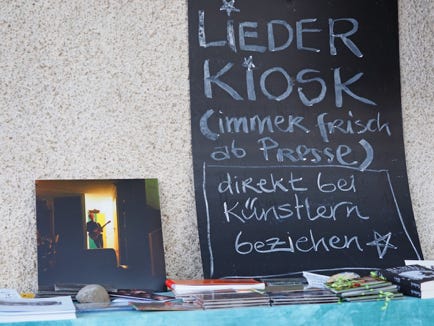 LiEDER
KiOSK
(immer frisch
ab Presse)
direkt bei
Künstlern
beziehen